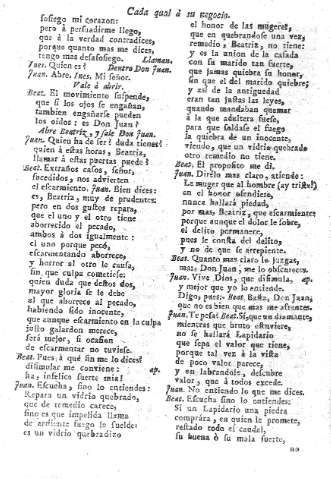 Cada qual à su negocio.
sosiego mi corazon:
pero à persuadirme llego,
que à la verdad contradices,
porque quanto mas me dices,
tengo mas desasosiego. Llaman.
Ines. Quien es? Dentro Don Juan.
Juan. Abre. Ines. Mi señor.
Vase à abrir.
Beat. El movimiento suspende,
que si los ojos se engañan,
tambien engañarse pueden
los oidos: es Don Juan?
Abre Beatriz, y sale Don Juan.
Juan. Quien ha de ser? duda tienes?
quien à estas horas, Beatriz,
llamar à estas puertas puede?
Beat. Estraños casos, señor,
sucedidos, nos advierten
el escarmiento. Juan. Bien dices:
es, Beatriz, muy de prudentes;
pero en dos gustos repara,
que el uno y el otro tiene
aborrecido el pecado,
ambos à dos igualmente:
el uno porque pecó,
escarmentando aborrece,
y horror al otro le causa,
sin que culpa cometiese:
quien duda que destos dos,
mayor gloria se le debe
al que aborrece al pecado,
habiendo sido inocente,
que aunque escarmiento en la culpa
justo galardon merece,
será mejor, si ocasion
de escarmentar no tuviese.
Beat. Pues à qué fin me lo dices?
disimular me conviene: ap.
ha, infelice suerte mia!
Juan. Escucha, sino lo entiendes:
Repara un vidrio quebrado,
que de remedio carece,
sino es que impelida llama
de ardiente fuego le suelde:
es un vidrio quebradizo
el honor de las mugeres,
que en quebrandose una vez,
remedio, Beatriz, no tiene:
y es la union de la casada
con su marido tan fuerte,
que jamas quiebra su honor,
sin que el del marido quiebre;
y asi de la antiguedad
eran tan justas las leyes,
quando mandaban quemar
à la que adultera fuese,
para que soldase el fuego
la quiebra de un inocente,
viendo, que un vidrio quebrado
otro remedio no tiene.
Beat. El proposito me di.
Juan. Dirélo mas claro, atiende:
La muger que al hombre (ay triste!)
en el honor ofendiere,
nunca hallará piedad,
por mas, Beatriz, que escarmiente;
porque aunque el dolor le sobre,
el delito permanece,
pues le consta del delito,
y no de que se arrepiente.
Beat. Quanto mas claro lo juzgas,
mas, Don Juan, me lo obscureces.
Juan. Vive Dios, que disimula, ap.
y mejor que yo lo entiende.
Digo, pues: Beat. Basta, Don Juan,
que no es bien que mas me afrentes.
Juan. Te pesa? Beat. Si, que un diamante,
mientras que bruto estuviere,
no se hallará Lapidario
que sepa el valor que tiene,
porque tal vez à la vista
de poco valor parece,
y en labrandole, descubre
valor, que à todos excede.
Juan. No entiendo lo que me dices.
Beat. Escucha sino lo entiendes:
Si un Lapidario una piedra
comprára, en quien le promete,
restado todo el caudal,
su buena ò su mala suerte,
no